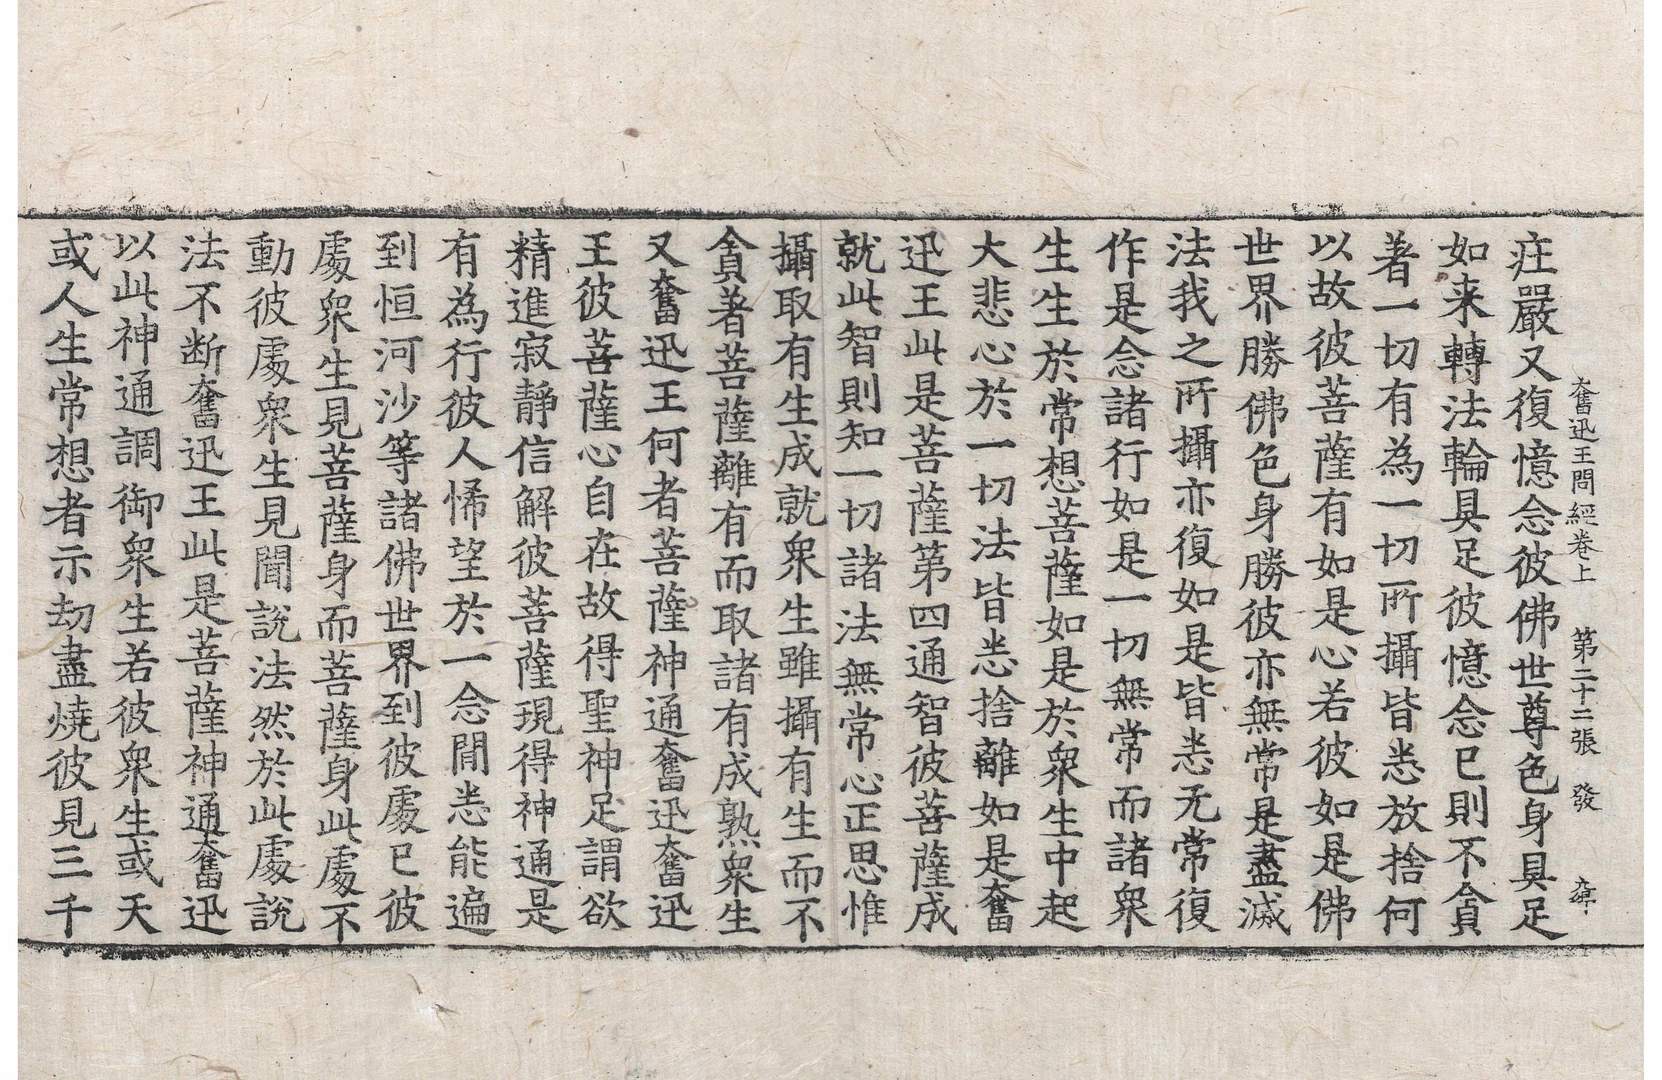 奮迅王問經卷上 第二十二張 發
疰嚴又復憶念彼佛世尊色身具足
如来轉法輪具足彼憶念已則不貪
著一切有為一切所攝皆悉放捨何
以故彼菩薩有如是心若彼如是佛
世界勝佛色身勝彼亦無常是盡滅
法我之所攝亦復如是皆悉无常復
作是念諸行如是一切無常而諸衆
生生於常想菩薩如是於衆生中起
大悲心於一切法皆悉捨離如是奮
迅王此是菩薩第四通智彼菩薩成
就此智則知一切諸法無常心正思惟
攝取有生成就衆生雖攝有生而不
貪著菩薩離有而取諸有成熟衆生
又奮迅王何者菩薩神通奮迅奮迅
王彼菩薩心自在故得聖神足謂欲
精進寂靜信解彼菩薩現得神通是
有為行彼人悕望於一念間悉能遍
到恒河沙等諸佛世界到彼處已彼
處衆生見菩薩身而菩薩身此處不
動彼處衆生見聞說法然於此處說
法不断奮迅王此是菩薩神通奮迅
以此神通調御衆生若彼衆生或天
或人生常想者示劫盡燒彼見三千